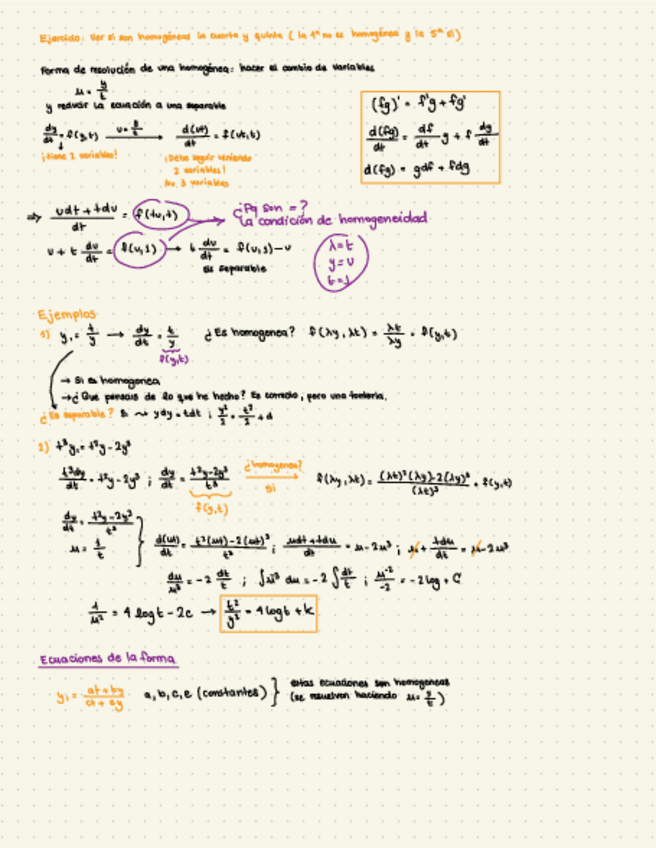 Ejercicio: Ver si son homogéneas la cuarta y quinta ( la 4ª no es homogénea y la 5ª sí)
Forma de resolución de una homogénea: hacer el cambio de variables
u = y/t
y reducir la ecuación a una separable
dy/dt = f(y,t) → d(ut)/dt = f(ut,t)
¡tiene 2 variables!
¡Debe seguir teniendo
2 variables!
No 3 variables
(fg)' = f'g + fg'
d(fg)/dt = df/dt g + f dg/dt
d(fg) = gdf + fdg
⇒ udt + tdu / dt = f(tu,t)
¿Pq son = ?
La condición de homogeneidad
u + t du/dt = f(u,1) → t du/dt = f(u,1) - u
es separable
λ=t
y=u
t=1
Ejemplos
1) y' = t/y → dy/dt = t/y ¿Es homogenea? f(λy, λt) = λt/λy = f(y,t)
f(y,t)
→ Si es homogenea
→ ¿Que pensais de lo que he hecho? Es correcto, pero una tontería.
¿Es separable? Si ⇝ ydy = tdt ; y²/2 = t²/2 + d
2) t³y' = t²y - 2y³
t³dy/dt = t²y - 2y³ ; dy/dt = t²y-2y³/t³ ¿homogenea? Si f(λy, λt) = (λt)²(λy)-2(λy)³/(λt)³ = f(y,t)
f(y,t)
dy/dt = t²y-2y³/t³
d(ut)/dt = t²(ut)-2(ut)³/t³ ; udt+tdu/dt = u-2u³ ; u + tdu/dt = u-2u³
du/u³ = -2 dt/t ; ∫u⁻³ du = -2 ∫dt/t ; u⁻²/-2 = -2 log + C
1/u² = 4 log t - 2c → t²/y² = 4 log t + k
Ecuaciones de la forma
y' = at+by/ct+ey a, b, c, e (constantes) } estas ecuaciones son homogeneas
(se resuelven haciendo u = y/t )